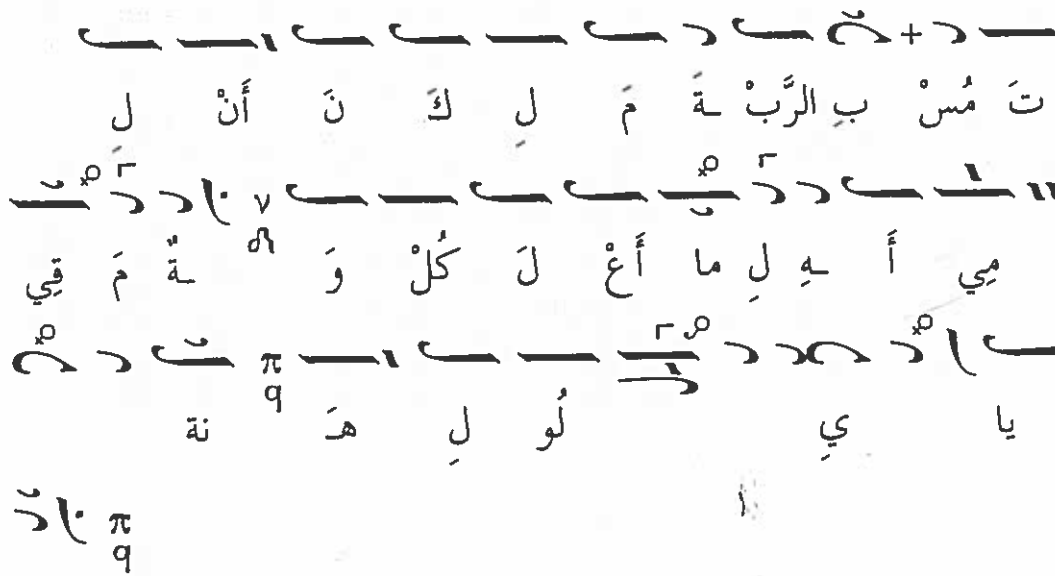 تَ مُسْ بِ الرَّبْ ـةَ مَ لِ كَ نَ أَنْ لِ
مِي أَ ـهِ لِ ما أَعْ لَ كُلْ وَ ـةٌ مَ قِي
يا يِ لُو لِ هَـ نة